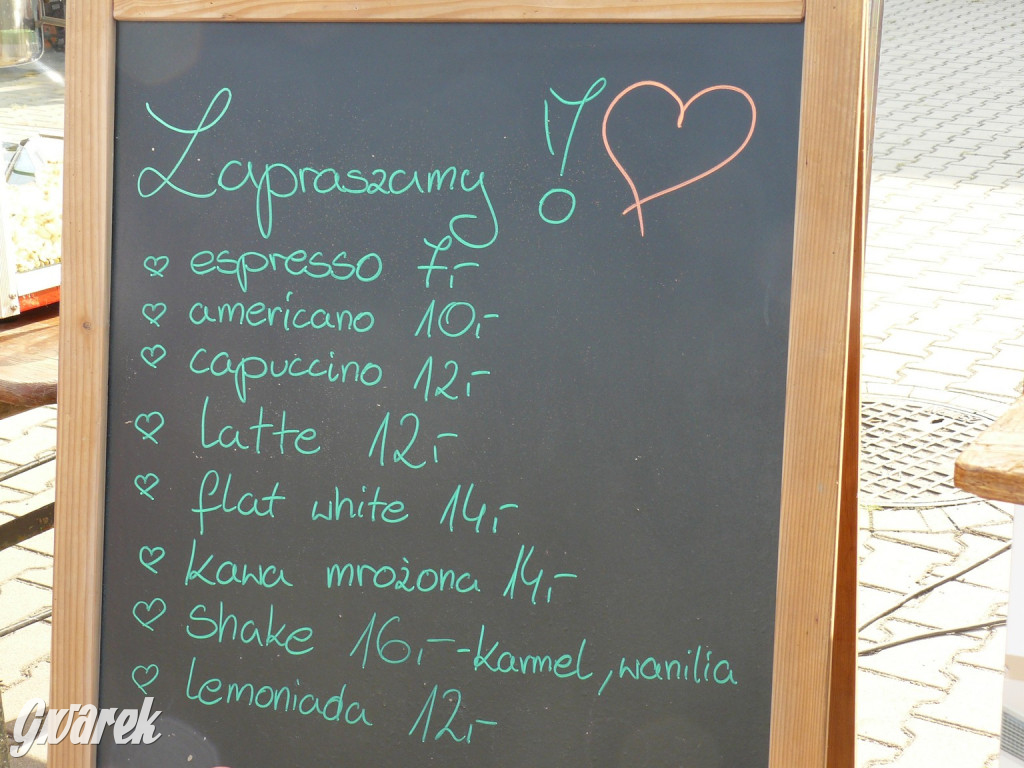 Zapraszamy!
espresso 7,-
americano 10,-
capuccino 12,-
latte 12,-
flat white 14,-
kawa mrożona 14,-
shake 16,- -karmel, wanilia
lemoniada 12,-
Gwarek